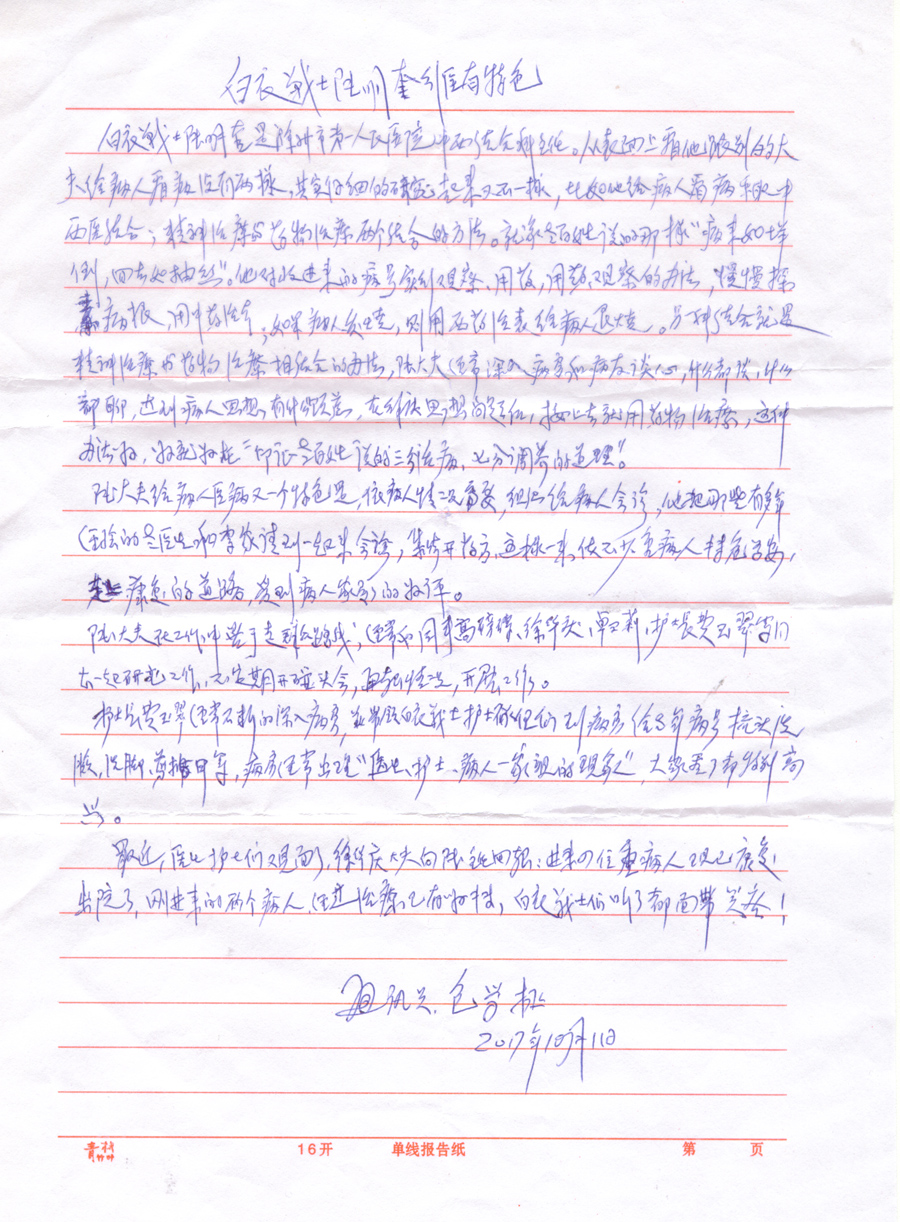 白衣战士陆明奎引医有特色
白衣战士陆明奎是 市第一人民医院中西结合科主任。从表面上看他跟别的大
夫给病人看病没有两样，其实仔细的 起来又不一样，比如他给病人看病采取中
西医结合；精神治疗与药物治疗两个结合的方法。就象老百姓说的那样“病来如山
倒，回去如抽丝”。他对收进来的病号实行观察、用药，用药、观察的办法，慢慢摸
病根，用中药治本；如果病人发烧，则用西药治表给病人退烧。另一种结合就是
精神治疗与药物治疗相结合的办法，陆大夫经常深入病房和病友谈心，什么都谈，什么
都聊，达到病人思想有什么 ，在 思想 ，接上去就用药物治疗，这种
办法好，好就好在“印证老百姓说的三分治病，七分调养的道理”。
陆大夫给病人医病又一个特色是，依病人情况需要，组织给病人会诊，他把那些有多年
经验的老医生和李教 请到一起来会诊，集体开药方，这样一来，使不少重病人转危为安，
走上康复的道路，受到病人家属的好评。
陆大夫在工作中善于走群众路线；经常和同事高 、徐华庆、单玉莉、护士长黄玉翠等们
在一起研究工作，不定期开碰头会， 情况，开展工作。
护士长黄玉翠经常不断的深入病房，并带领白衣战士护士们 到病房给老年病号梳头洗
脸，洗脚、剪指甲等，病房经常出现“医生、护士、病人一家亲的现象”，大家看了都特别高
兴。
最近，医生护士们又见面了，徐华庆大夫向陆主任回报：进来四位重病人现已康复
出院了，刚进来的两个病人，经过治疗已有好转，白衣战士们听了都面带笑容！
包学
2017年10月11日
16开 单线报告纸 第 页